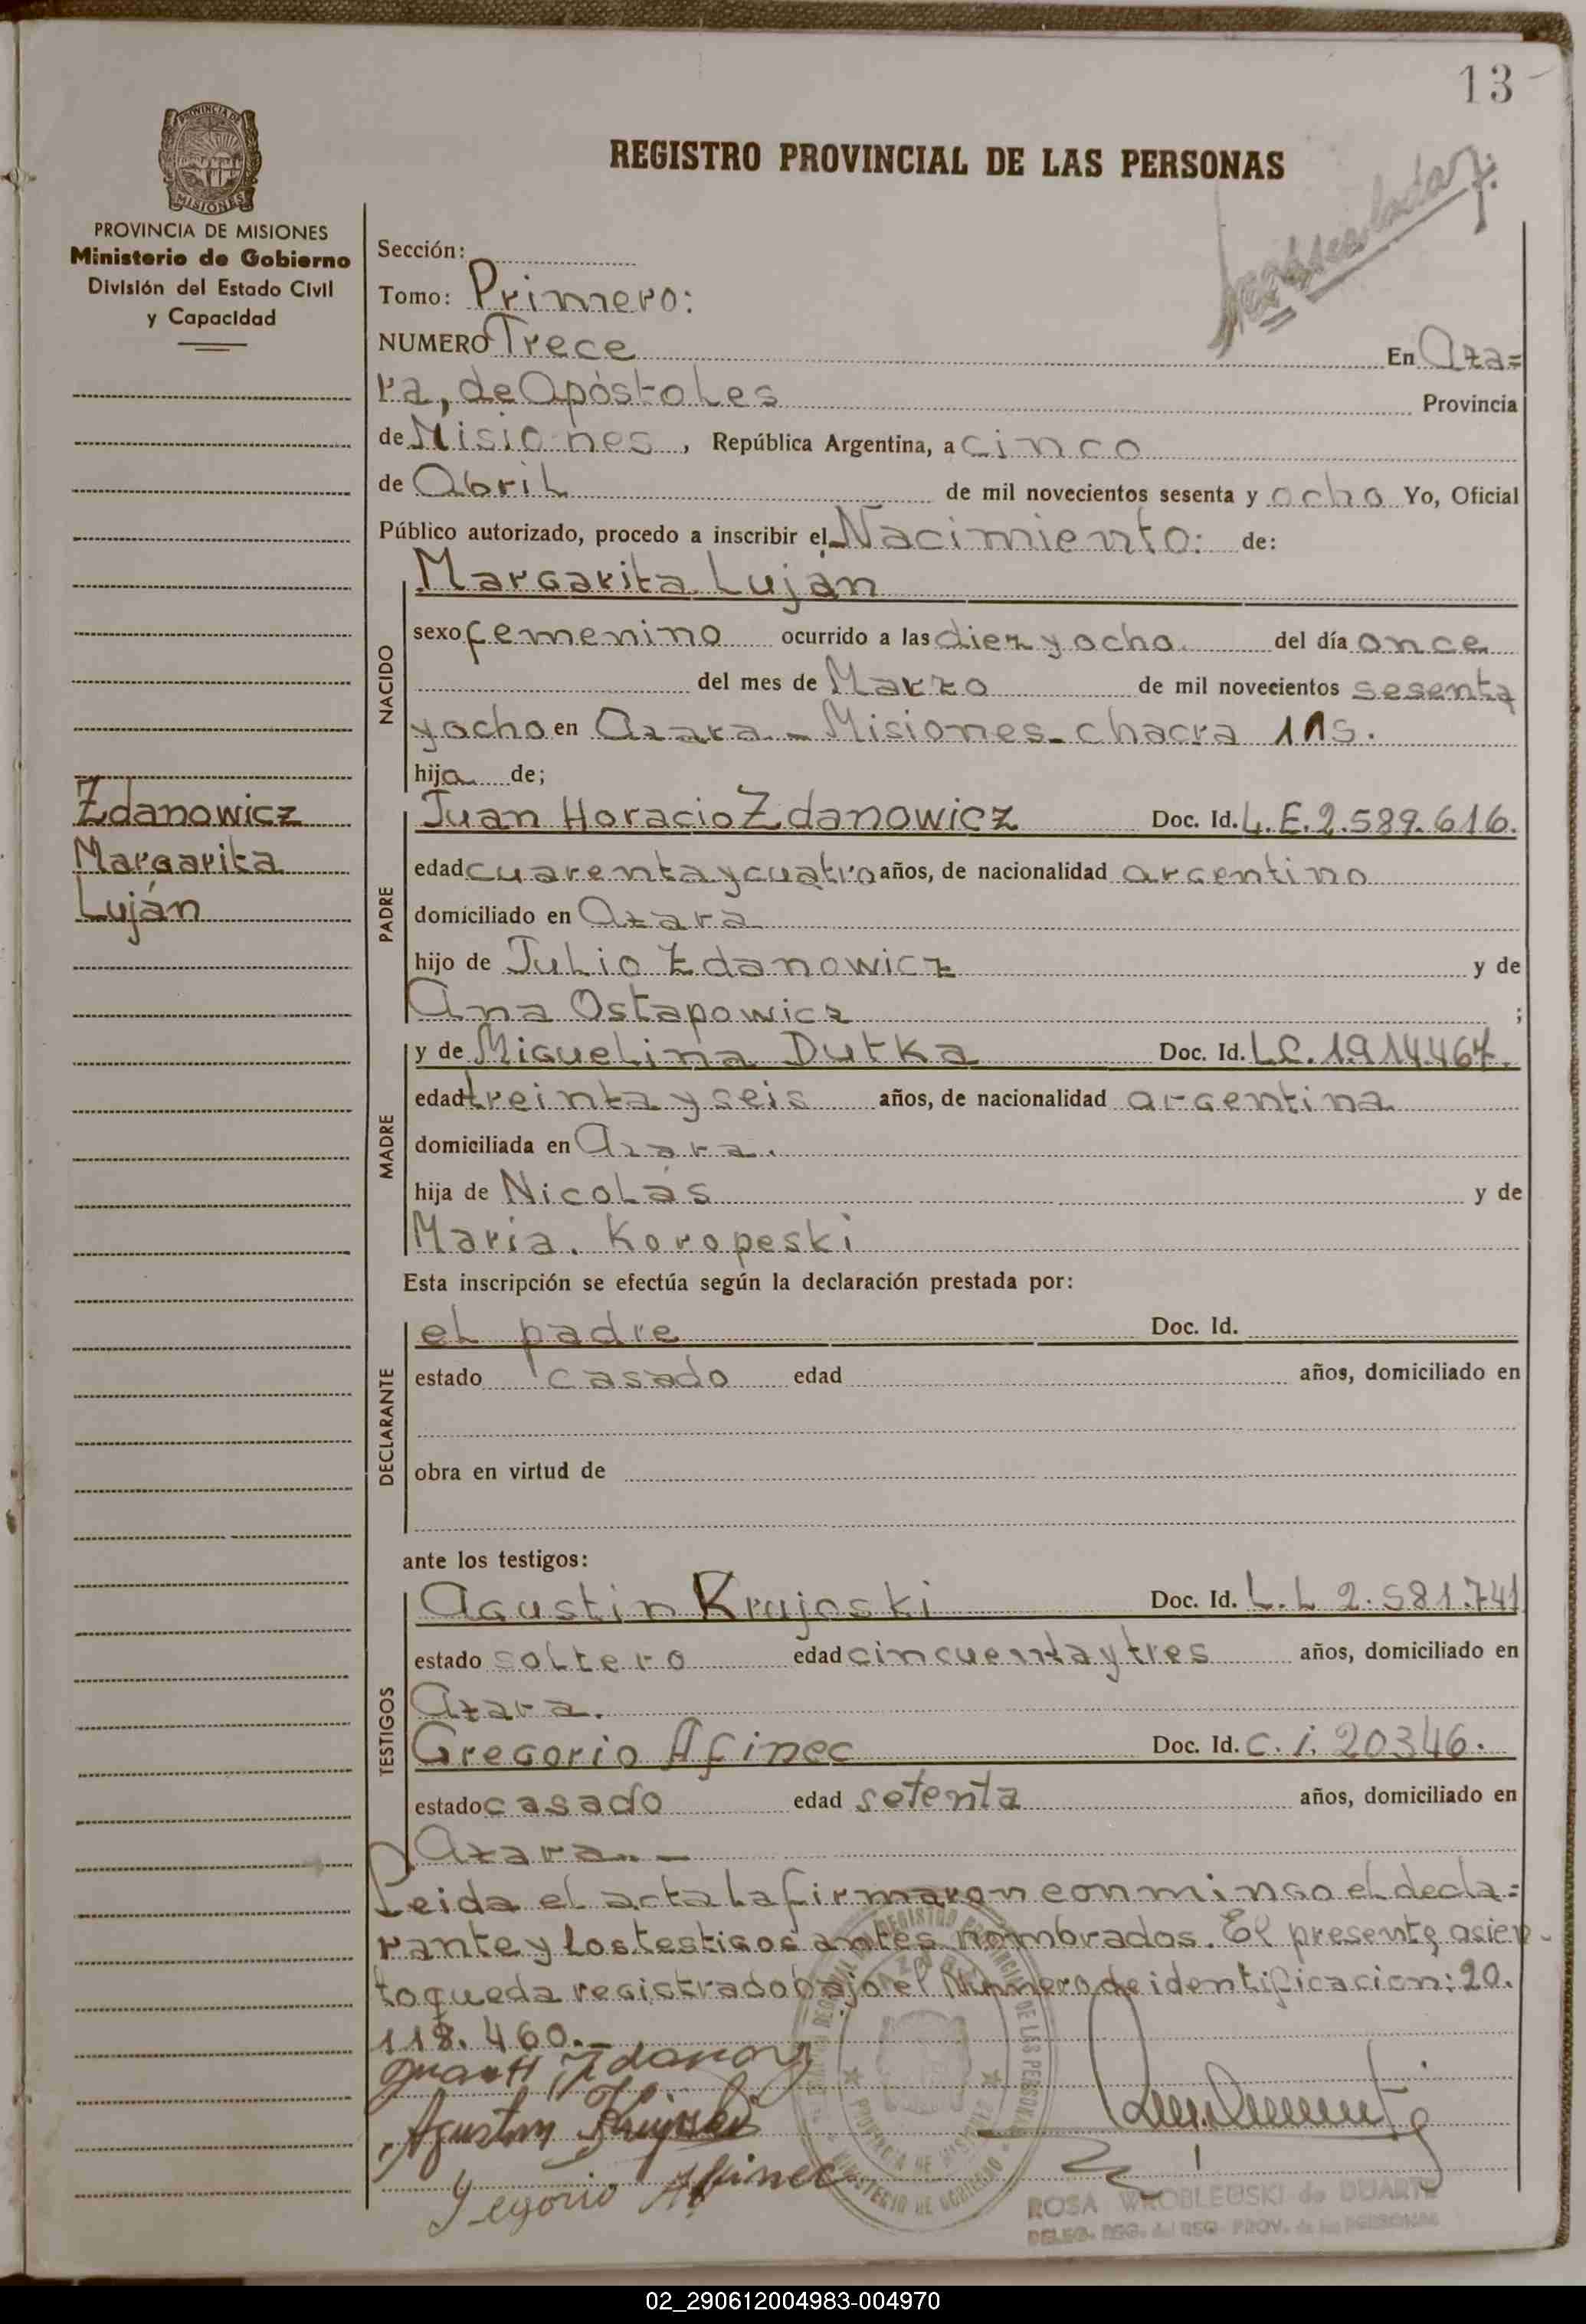 13
PROVINCIA DE
MISIONES
REGISTRO PROVINCIAL DE LAS PERSONAS
PROVINCIA DE MISIONES
Ministerio de Gobierno
División del Estado Civil
y Capacidad
Sección:
Tomo: Primero:
NUMERO Trece En Aza=
ra, de Apóstoles Provincia
de Misiones, República Argentina, a cinco
de Abril de mil novecientos sesenta y ocho Yo, Oficial
Público autorizado, procedo a inscribir el Nacimiento: de:
Margarita Luján
NACIDO
sexo femenino ocurrido a las diez y ocho del día once
del mes de Marzo de mil novecientos sesenta
y ocho en Azara - Misiones - chacra 115.
hija de;
Zdanowicz
Margarita
Luján
PADRE
Juan Horacio Zdanowicz Doc. Id. L.E. 2.589.616.
edad cuarenta y cuatro años, de nacionalidad argentino
domiciliado en Azara
hijo de Julio Zdanowicz y de
Ana Ostapowicz ;
MADRE
y de Miguelina Dutka Doc. Id. L.C. 1.914.467.
edad treinta y seis años, de nacionalidad argentina
domiciliada en Azara.
hija de Nicolás y de
María. Koropeski
Esta inscripción se efectúa según la declaración prestada por:
DECLARANTE
el padre Doc. Id.
estado casado edad años, domiciliado en
obra en virtud de
ante los testigos:
TESTIGOS
Agustin Krujoski Doc. Id. L.L 2.581.741
estado soltero edad cincuenta y tres años, domiciliado en
Azara.
Gregorio Afinec Doc. Id. C.i. 20346.
estado casado edad setenta años, domiciliado en
Azara.-
Leida el acta la firmaron conmingo el decla=
rante y los testigos antes nombrados. El presente asien-
to queda registrado bajo el Numero de identificacion: 20.
118.460.-
Juan H Zdanowicz
Agustin Krujoski
Gregorio Afinec
ROSA WROBLEUSKI de DUARTE
DELEG. REG. del REG. PROV. de las PERSONAS
02_290612004983-004970